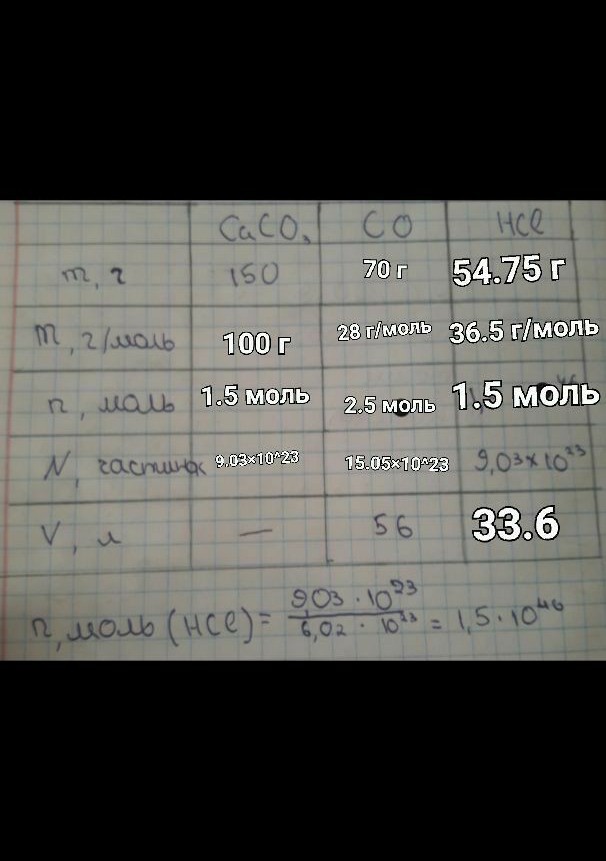 CaCO₃ CO HCl
m, г 150 70 г 54.75 г
M, г/моль 100 г 28 г/моль 36.5 г/моль
n, моль 1.5 моль 2.5 моль 1.5 моль
N, частинок 9,03×10^23 15.05×10^23 9,03×10²³
V, л — 56 33.6
n, моль (HCl) = 9,03 · 10²³ / 6,02 · 10²³ = 1,5 · 10⁴⁶